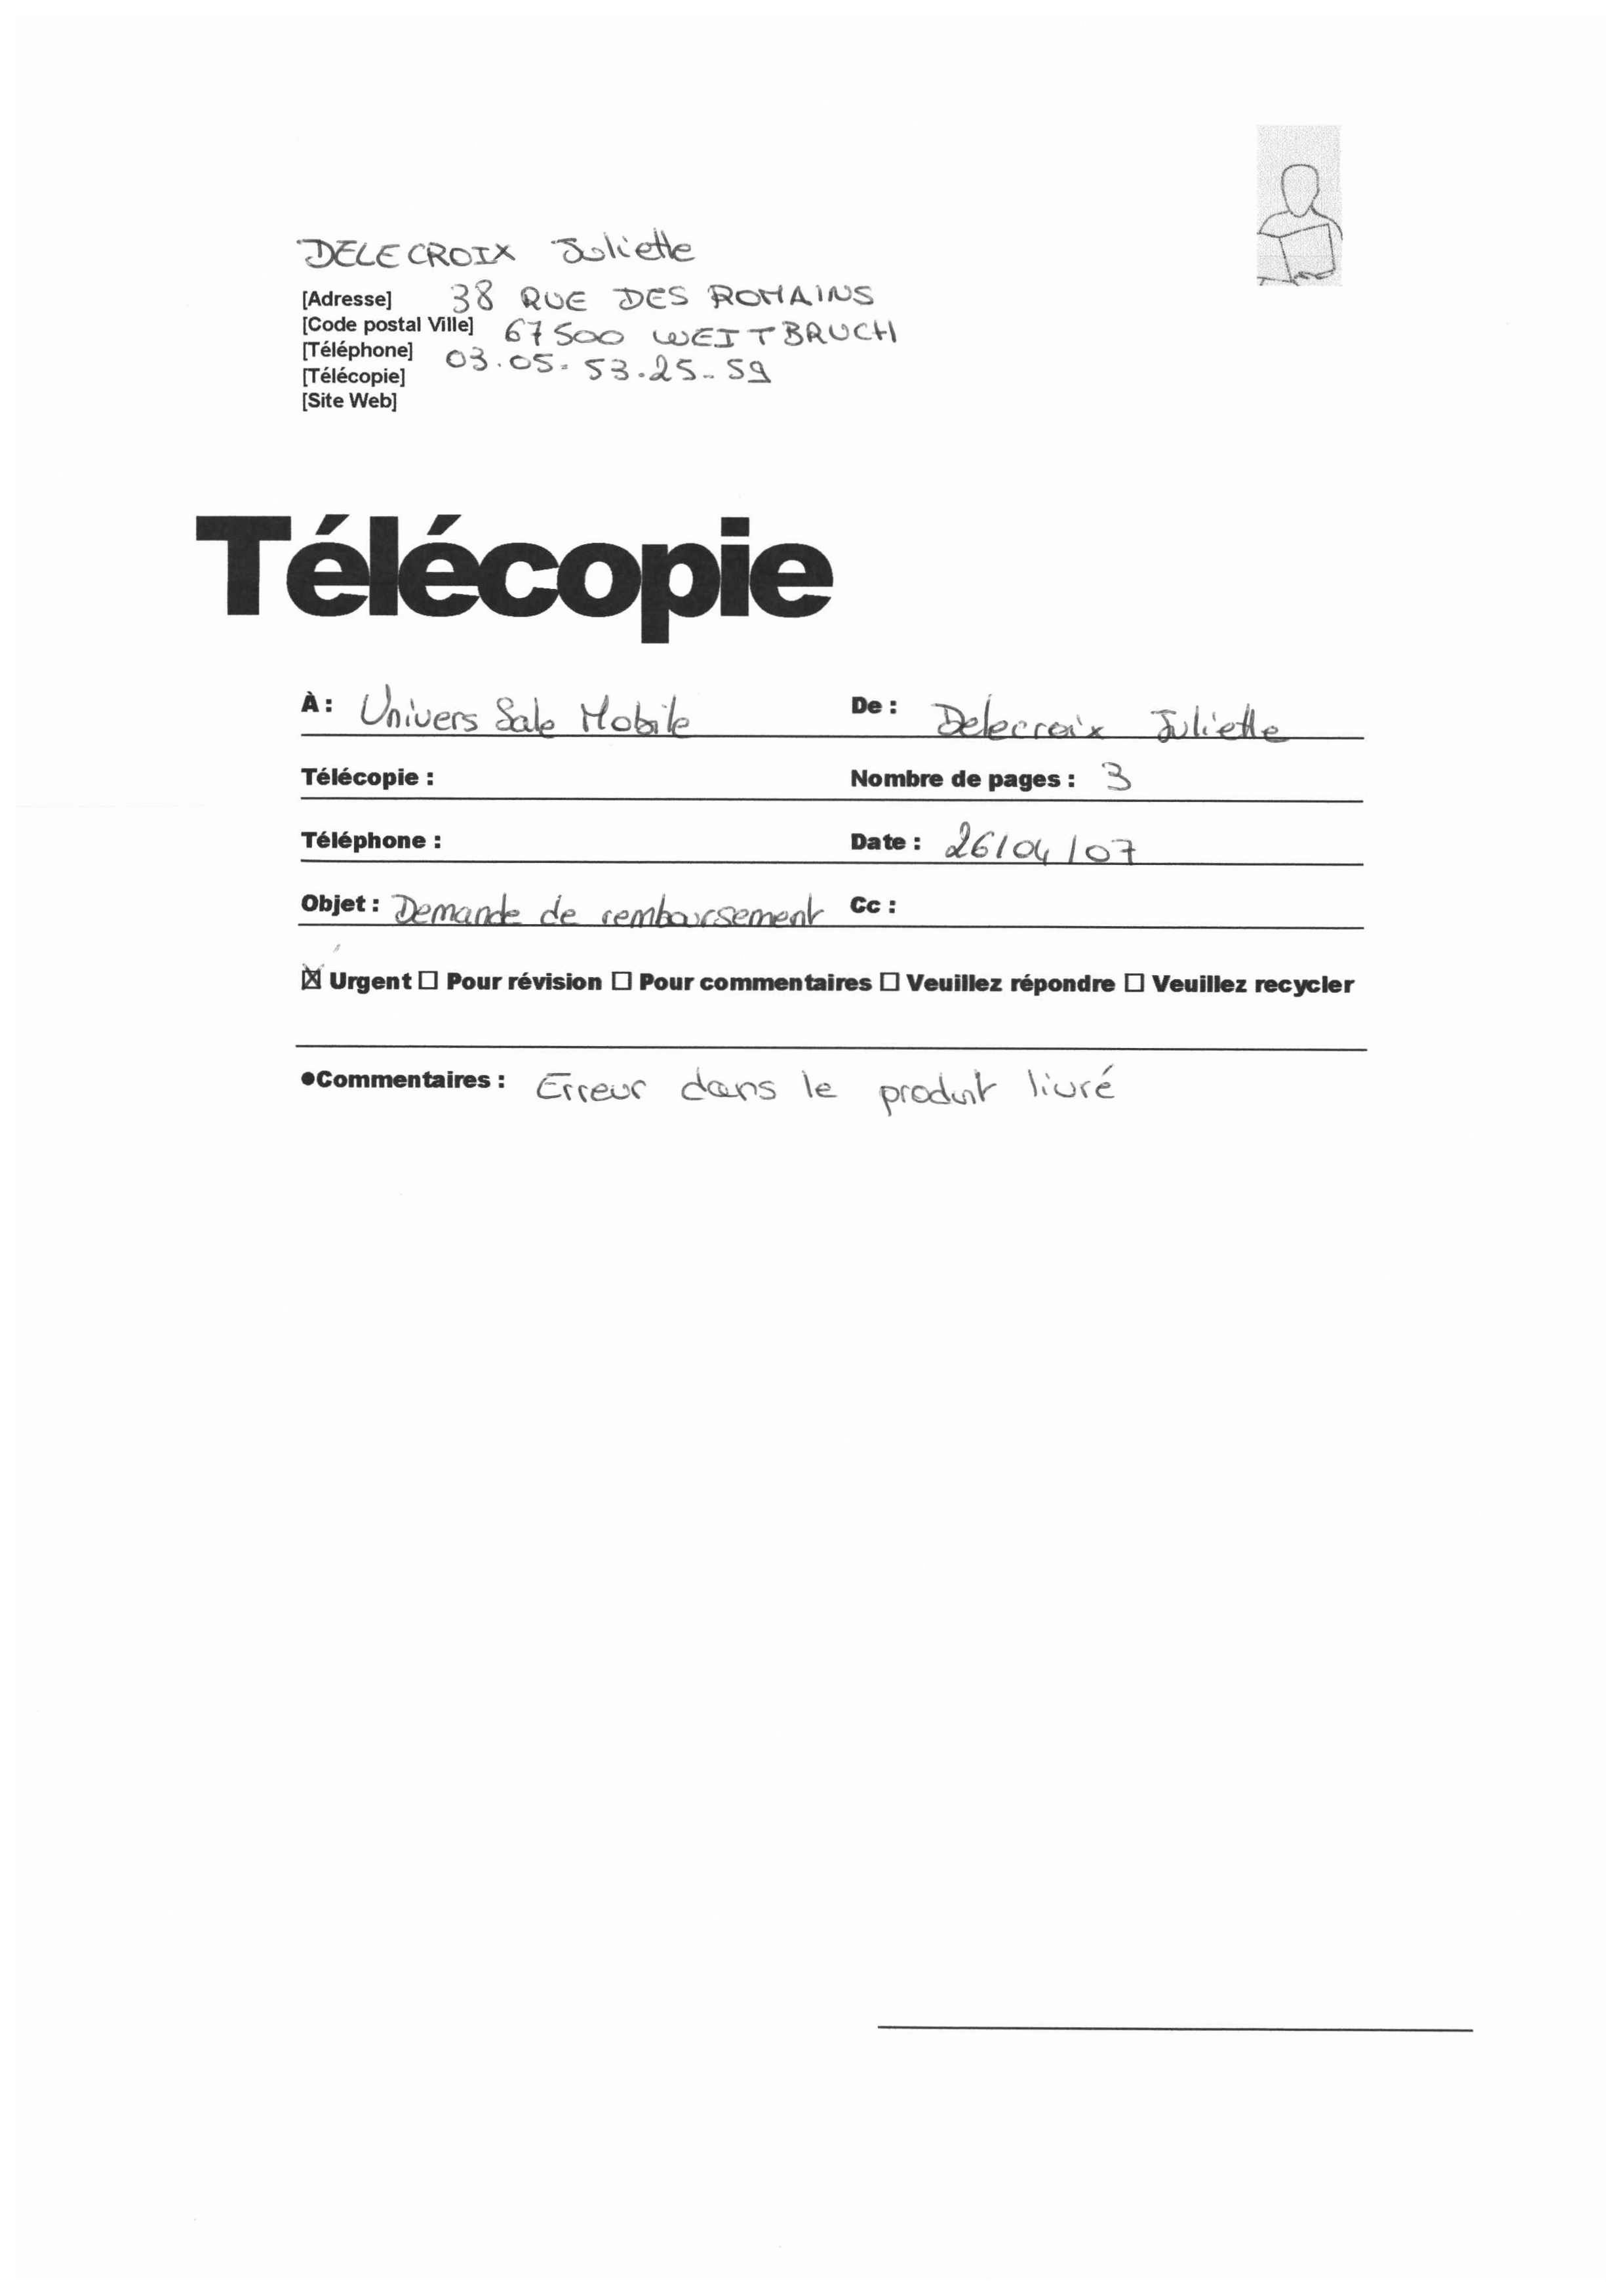 DELECROIX Juliette
[Adresse] 38 RUE DES ROMAINS
[Code postal Ville] 67500 WEITBRUCH
[Téléphone] 03.05.53.25.59
[Télécopie]
[Site Web]
Télécopie
À : Univers Sale Mobile De : Delecroix Juliette
Télécopie : Nombre de pages : 3
Téléphone : Date : 26/04/07
Objet : Demande de remboursement Cc :
☒ Urgent ☐ Pour révision ☐ Pour commentaires ☐ Veuillez répondre ☐ Veuillez recycler
●Commentaires : Erreur dans le produit livré